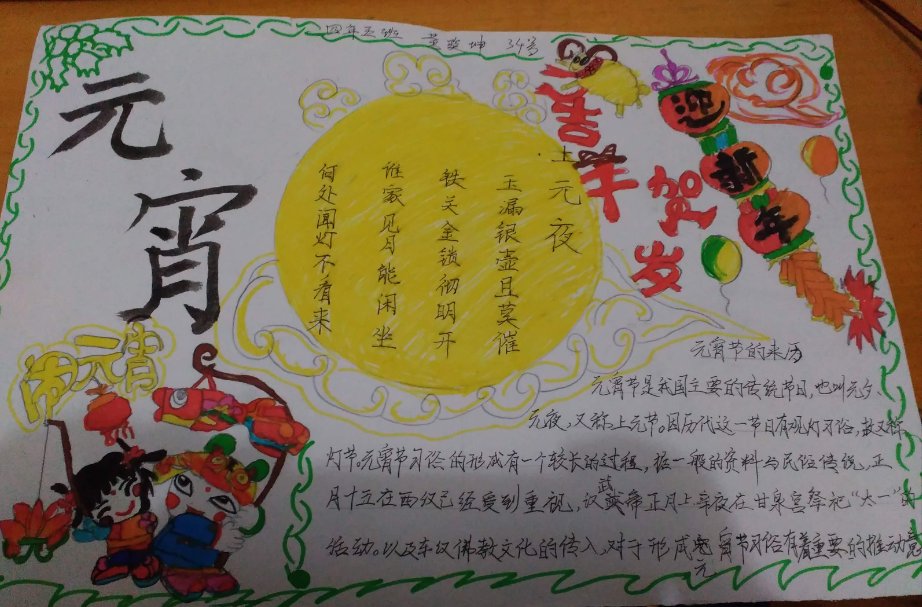 四年五班 董奕坤 34号
元
宵
闹元宵
上元夜
玉漏银壶且莫催
铁关金锁彻明开
谁家见月能闲坐
何处闻灯不看来
喜羊
贺岁
迎新年
元宵节的来历
元宵节是我国主要的传统节日,也叫元夕、
元夜,又称上元节。因历代这一节日有观灯习俗,故又称
灯节。元宵节习俗的形成有一个较长的过程,据一般的资料与民俗传说,正
月十五在西汉已经受到重视,汉武帝正月上辛夜在甘泉宫祭祀“太一”的
活动。以及东汉佛教文化的传入,对于形成元宵节习俗有着重要的推动意